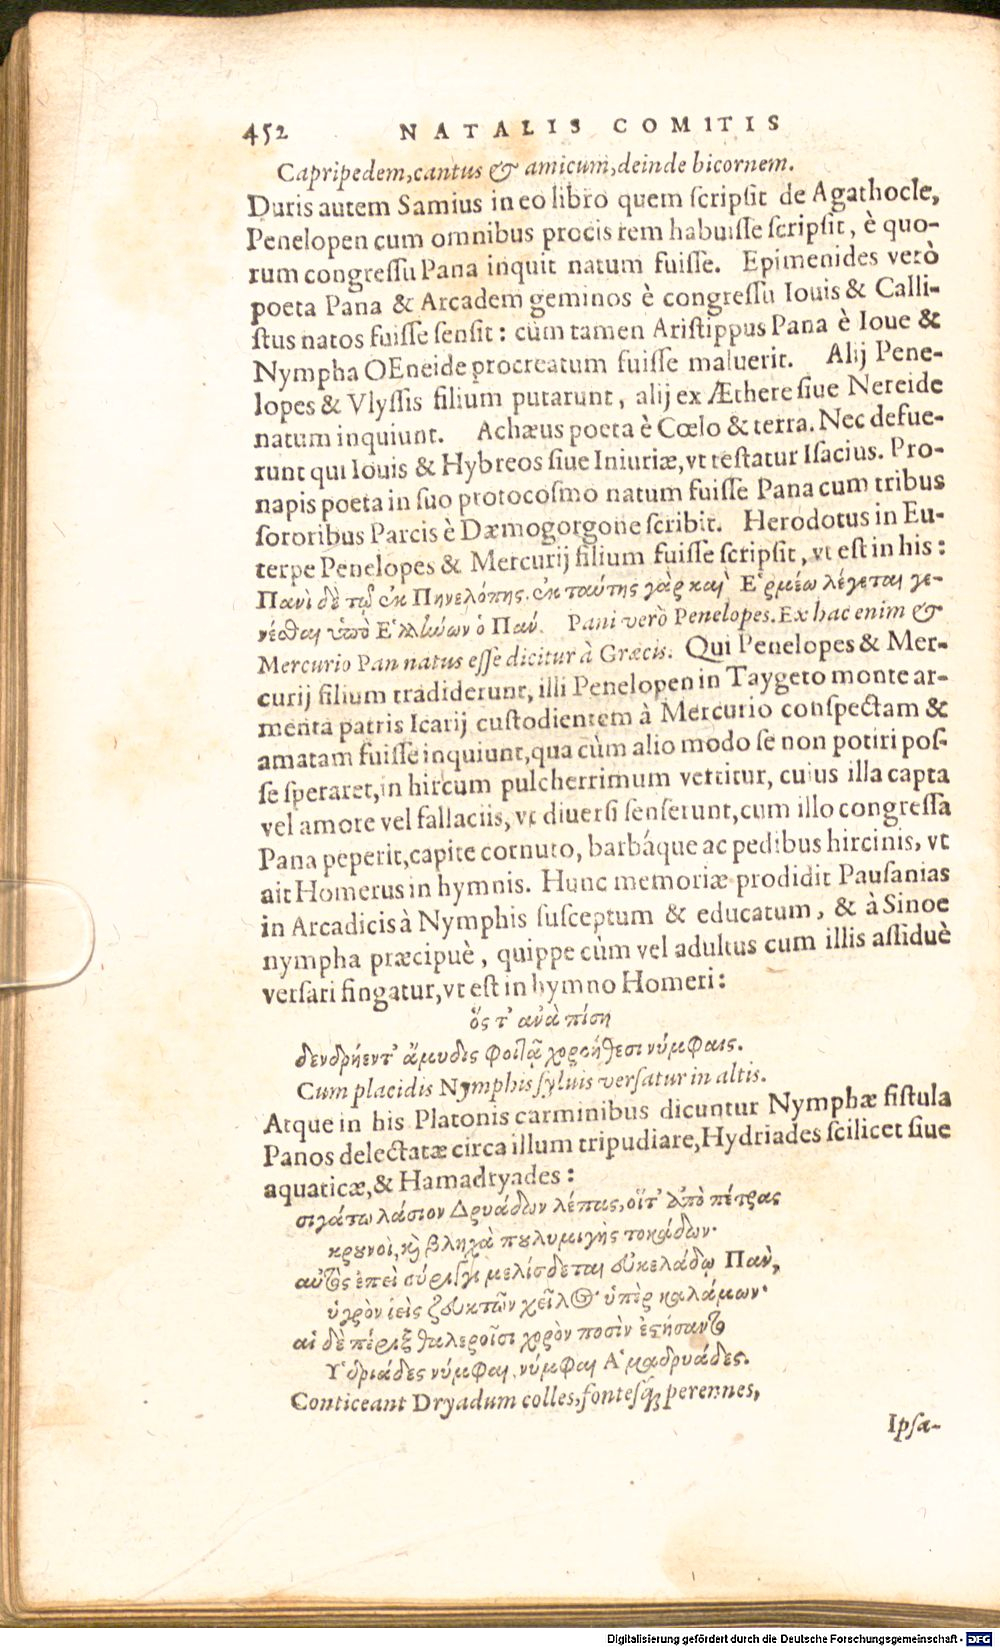 452 NATALIS COMITIS
Capripedem, cantus & amicum, deinde bicornem.
Duris autem Samius in eo libro quem ſcripſit de Agathocle,
Penelopen cum omnibus procis rem habuiſſe ſcripſit, è quo-
rum congreſſu Pana inquit natum fuiſſe. Epimenides verò
poeta Pana & Arcadem geminos è congreſſu Iouis & Calli-
ſtus natos fuiſſe ſenſit: cùm tamen Ariſtippus Pana è Ioue &
Nympha OEneide procreatum fuiſſe maluerit. Alij Pene-
lopes & Vlyſſis filium putarunt, alij ex Æthere ſiue Nereide
natum inquiunt. Achæus poeta è Cœlo & terra. Nec defue-
runt qui Iouis & Hybreos ſiue Iniuriæ, vt teſtatur Iſacius. Pro-
napis poeta in ſuo protocoſmo natum fuiſſe Pana cum tribus
ſororibus Parcis è Dæmogorgone ſcribit. Herodotus in Eu-
terpe Penelopes & Mercurij filium fuiſſe ſcripſit, vt eſt in his:
Πανὶ δὲ τῷ ἐκ Πηνελόπης. ἐκ ταύτης γὰρ καὶ Ἑρμέω λέγεται γε-
νέσθαι ὑπὸ Ἑλλήνων ὁ Πάν. Pani verò Penelopes. Ex hac enim &
Mercurio Pan natus eſſe dicitur à Græcis. Qui Penelopes & Mer-
curij filium tradiderunt, illi Penelopen in Taygeto monte ar-
menta patris Icarij cuſtodientem à Mercurio conſpectam &
amatam fuiſſe inquiunt, qua cùm alio modo ſe non potiri poſ-
ſe ſperaret, in hircum pulcherrimum vertitur, cuius illa capta
vel amore vel fallaciis, vt diuerſi ſenſerunt, cum illo congreſſa
Pana peperit, capite cornuto, barbáque ac pedibus hircinis, vt
ait Homerus in hymnis. Hunc memoriæ prodidit Pauſanias
in Arcadicis à Nymphis ſuſceptum & educatum, & à Sinoe
nympha præcipuè, quippe cùm vel adultus cum illis aſſiduè
verſari fingatur, vt eſt in hymno Homeri:
ὅς τ' ἀνὰ πίση
δενδρήεντ' ἄμυδις φοιτᾷ χορσήθεσι νύμφαις.
Cum placidis Nymphis ſyluis verſatur in altis.
Atque in his Platonis carminibus dicuntur Nymphæ fiſtula
Panos delectatæ circa illum tripudiare, Hydriades ſcilicet ſiue
aquaticæ, & Hamadryades:
σιγάτω λάσιον Δρυάδων λέπας, οἵτ' ἀπὸ πέτρας
κρουνοὶ, καὶ βληχὰ πουλυμιγὴς τοκάδων·
αὐτὸς ἐπεὶ σύριγγι μελίσδεται εὐκελάδῳ Πὰν,
ὑγρὸν ἱεὶς ζευκτῶν χεῖλος ὑπὲρ καλάμων·
αἱ δὲ πέριξ θαλεροῖσι χορὸν ποσὶν ἐστήσαντο
Ὑδριάδες νύμφαι, νύμφαι Ἁμαδρυάδες.
Conticeant Dryadum colles, fonteſq; perennes,
Ipſa-
Digitalisierung gefördert durch die Deutsche Forschungsgemeinschaft - DFG